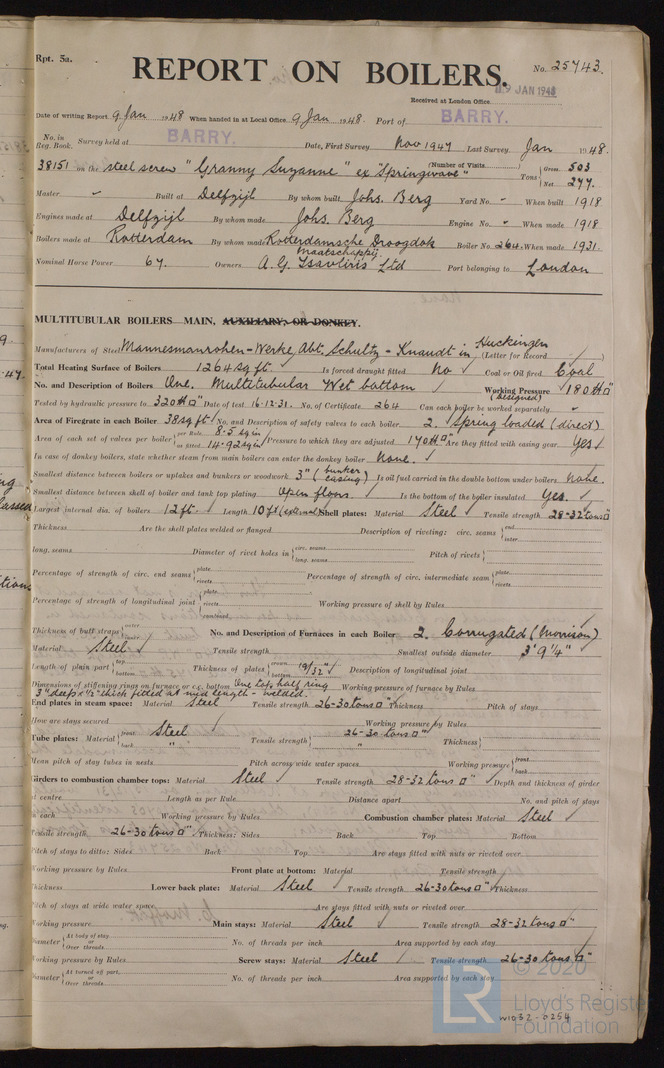 Rpt. 5a.
No. 25743.
REPORT ON BOILERS.
9 JAN 1948
Received at London Office
Date of writing Report 9 Jan 1948 When handed in at Local Office 9 Jan 1948. Port of BARRY.
No. in Reg. Book. Survey held at BARRY. Date, First Survey Nov 1947 Last Survey Jan 1948.
(Number of Visits)
38151 on the steel screw "Granny Suzanne" ex "Springwave" Tons { Gross 503 Net 277.
Master - Built at Delfzijl By whom built Johs. Berg Yard No. - When built 1918.
Engines made at Delfzijl By whom made Johs. Berg Engine No. - When made 1918
Boilers made at Rotterdam By whom made Rotterdamsche Droogdok Maatschappij Boiler No. 264. When made 1931.
Nominal Horse Power 67. Owners A. G. Tsavliris Ltd Port belonging to London
MULTITUBULAR BOILERS MAIN, AUXILIARY, OR DONKEY.
Manufacturers of Steel Mannesmanrohen-Werke, Abt. Schultz-Knaudt in Huckingen (Letter for Record )
Total Heating Surface of Boilers 1264 sq ft. Is forced draught fitted No Coal or Oil fired Coal
No. and Description of Boilers One. Multitubular Wet bottom Working Pressure (Designed) 180 lb□"
Tested by hydraulic pressure to 320 lb□" Date of test 16.12.31. No. of Certificate 264 Can each boiler be worked separately -
Area of Firegrate in each Boiler 38 sq ft No. and Description of safety valves to each boiler 2. Spring loaded (direct)
Area of each set of valves per boiler { per Rule 8.5 sq in as fitted 14.92 sq in Pressure to which they are adjusted 170 lb□" Are they fitted with easing gear Yes
In case of donkey boilers, state whether steam from main boilers can enter the donkey boiler None.
Smallest distance between boilers or uptakes and bunkers or woodwork 3" (bunker casing) Is oil fuel carried in the double bottom under boilers None.
Smallest distance between shell of boiler and tank top plating Open floors. Is the bottom of the boiler insulated Yes.
Largest internal dia. of boilers 12 ft. Length 10 ft (external) Shell plates: Material Steel Tensile strength 28-32 tons□"
Thickness Are the shell plates welded or flanged Description of riveting: circ. seams { end inter.
long. seams Diameter of rivet holes in { circ. seams long. seams Pitch of rivets {
Percentage of strength of circ. end seams { plate rivets Percentage of strength of circ. intermediate seam { plate rivets
Percentage of strength of longitudinal joint { plate rivets combined Working pressure of shell by Rules
Thickness of butt straps { outer inner No. and Description of Furnaces in each Boiler 2. Corrugated (Morrison)
Material Steel Tensile strength Smallest outside diameter 3' 9¼"
Length of plain part { top bottom Thickness of plates { crown bottom 19/32" Description of longitudinal joint
Dimensions of stiffening rings on furnace or c.c. bottom One top half ring Working pressure of furnace by Rules
3" deep x ½" thick fitted at mid length - welded.
End plates in steam space: Material Steel Tensile strength 26-30 tons□" Thickness Pitch of stays
How are stays secured Working pressure by Rules
Tube plates: Material { front Steel back " Tensile strength { 26-30 tons□" " Thickness {
Mean pitch of stay tubes in nests Pitch across wide water spaces Working pressure { front back
Girders to combustion chamber tops: Material Steel Tensile strength 28-32 tons□" Depth and thickness of girder
at centre Length as per Rule Distance apart No. and pitch of stays
in each Working pressure by Rules Combustion chamber plates: Material Steel
Tensile strength 26-30 tons□" Thickness: Sides Back Top Bottom
Pitch of stays to ditto: Sides Back Top Are stays fitted with nuts or riveted over
Working pressure by Rules Front plate at bottom: Material Tensile strength
Thickness Lower back plate: Material Steel Tensile strength 26-30 tons□" Thickness
Pitch of stays at wide water space Are stays fitted with nuts or riveted over
Working pressure Main stays: Material Steel Tensile strength 28-32 tons□"
Diameter { At body of stay or Over threads No. of threads per inch Area supported by each stay
Working pressure by Rules Screw stays: Material Steel Tensile strength 26-30 tons□"
Diameter { At turned off part, or Over threads No. of threads per inch Area supported by each stay
© 2020
LR
Lloyd's Register
Foundation
W1032-0254